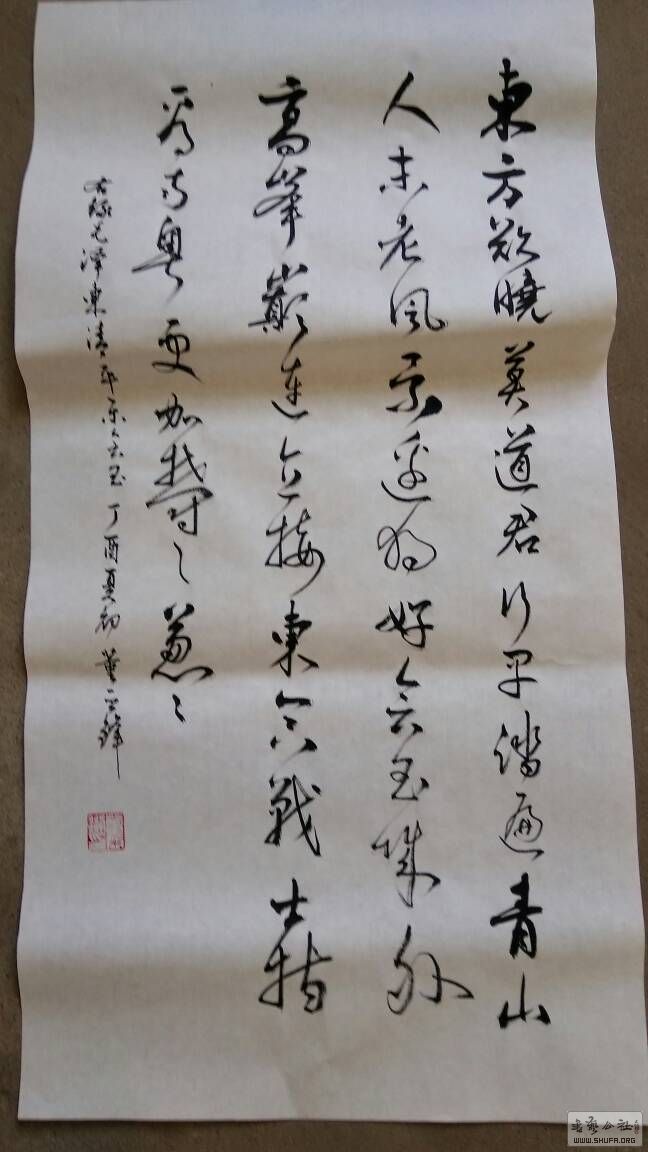 東方欲曉莫道君行早踏遍青山
人未老風景邊獨好會昌城外
高峰巔連直接東戰士指
看南粵更加鬱〻蔥〻
右錄毛澤東清平樂會昌 丁酉夏初 董鋒
书艺公社
WWW.SHUFA.ORG